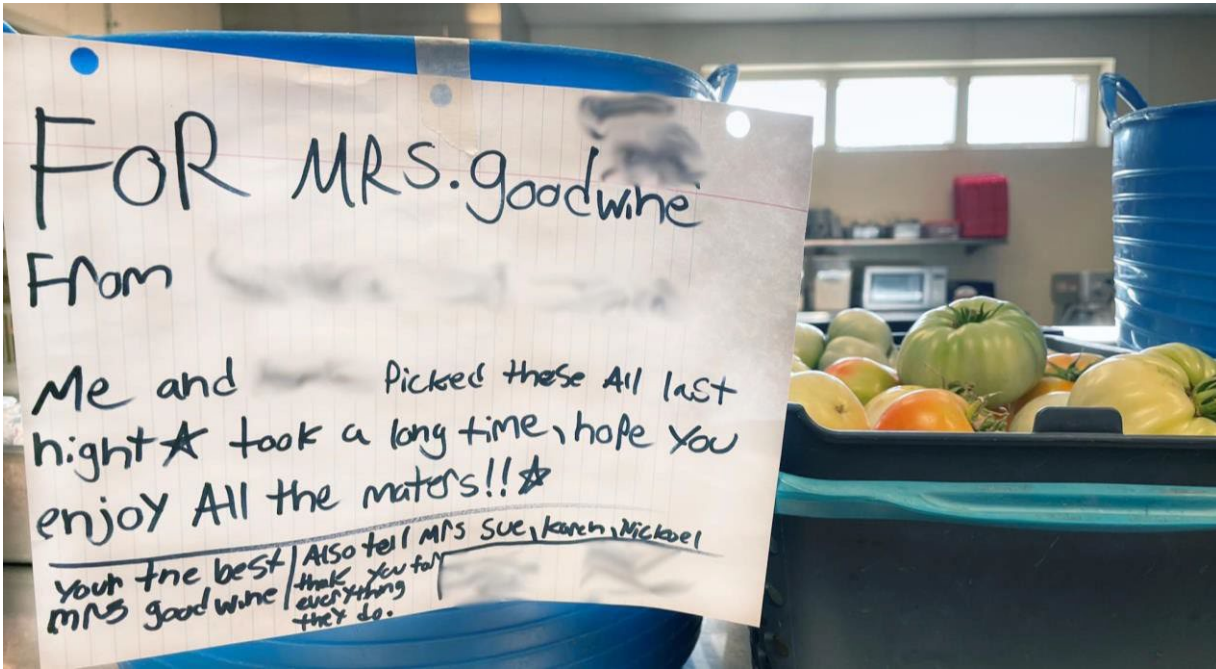 FOR MRS. goodwine
From
Me and Picked these All last
night☆ took a long time, hope you
enjoy All the maters!!☆
Your the best
mrs goodwine
Also tell Mrs Sue, karen, Nickoel
thak you for
everything
they do.